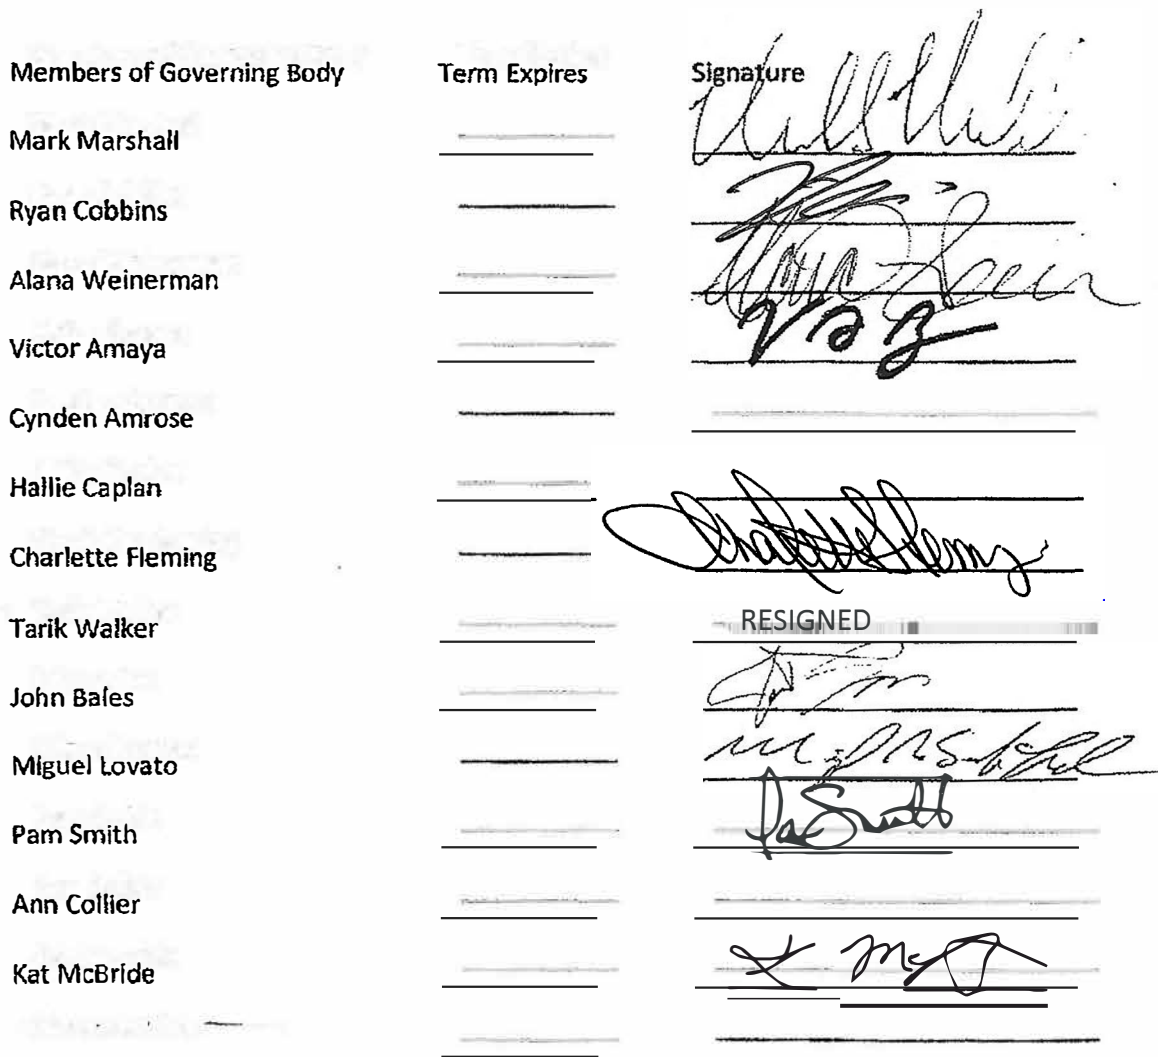 Members of Governing Body Term Expires Signature
Mark Marshall
Ryan Cobbins
Alana Weinerman
Victor Amaya
Cynden Amrose
Hallie Caplan
Charlette Fleming
Tarik Walker RESIGNED
John Bales
Miguel Lovato
Pam Smith Pam Smith
Ann Collier
Kat McBride